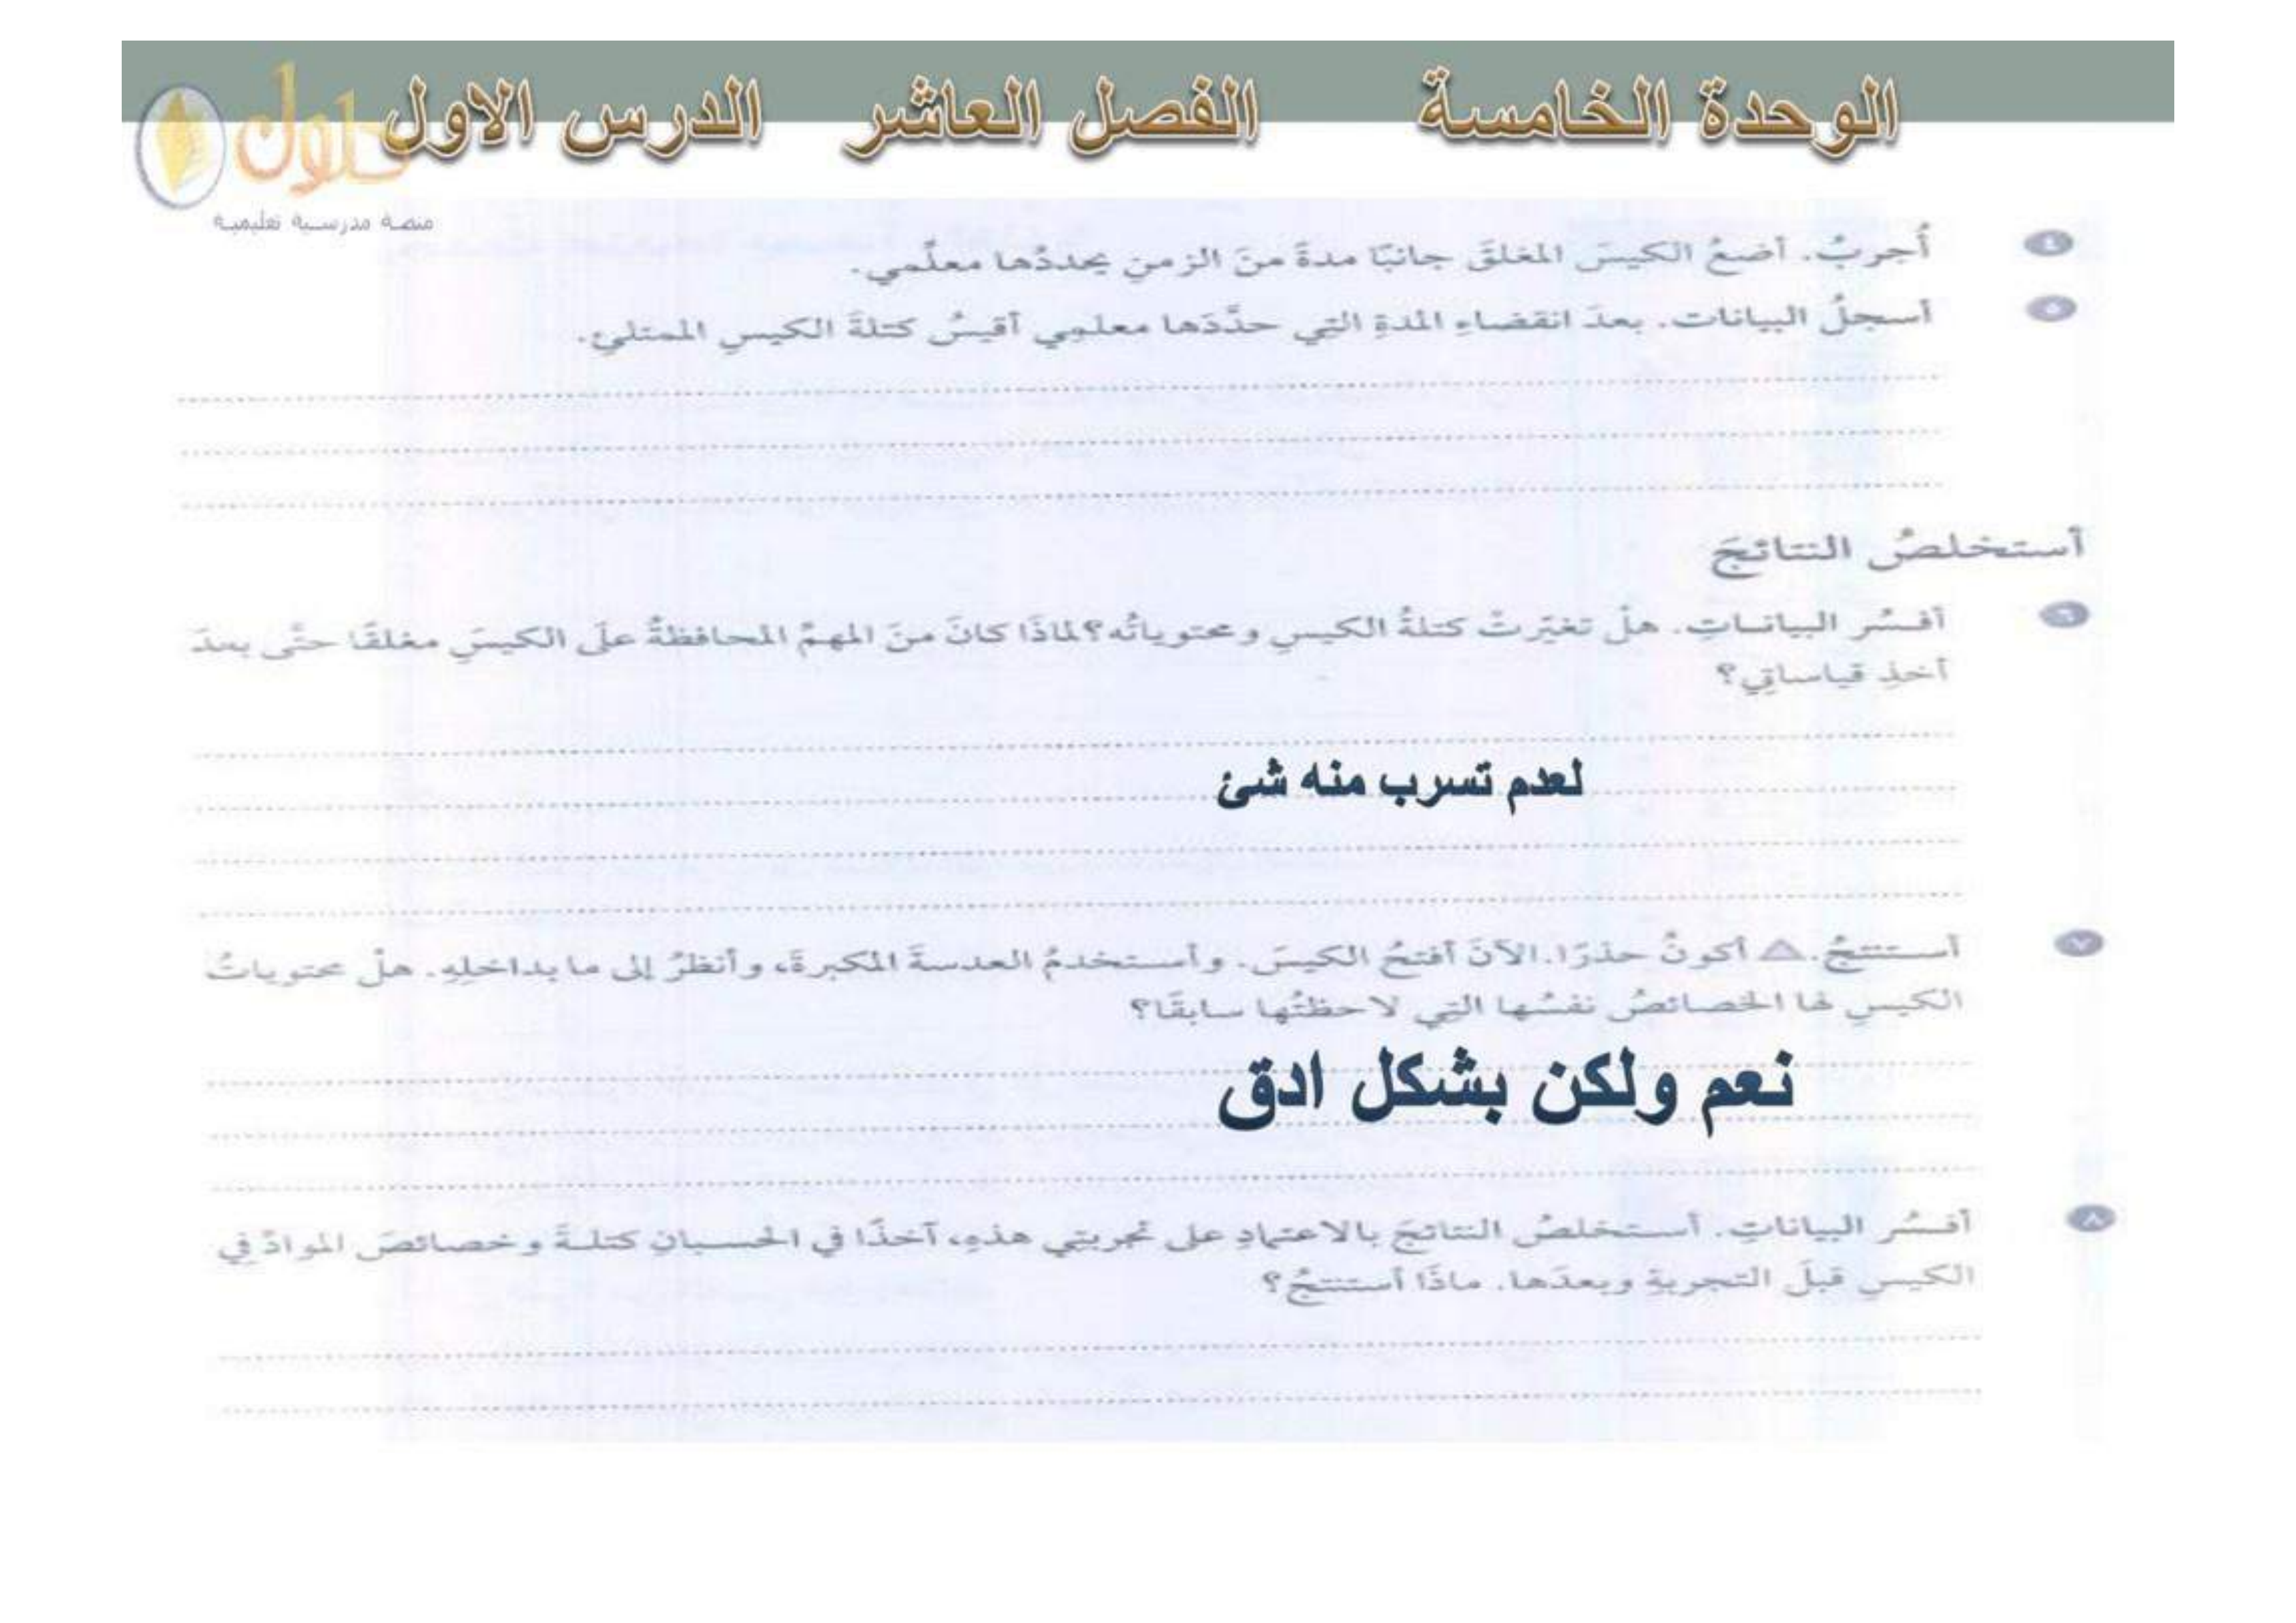 الوحدة الخامسة الفصل العاشر الدرس الاول
حلول
منصة مدرسية تعليمية
٤ أُجربُ. أضعُ الكيسَ المغلقَ جانبًا مدةً منَ الزمنِ يحددُها معلِّمي.
٥ أسجلُ البيانات. بعدَ انقضاءِ المدةِ التِي حدَّدَها معلمِي أقيسُ كتلةَ الكيسِ الممتلئِ.
أستخلصُ النتائجَ
٦ أفسِّر البياناتِ. هلْ تغيّرتْ كتلةُ الكيسِ ومحتوياتُه؟ لماذَا كانَ منَ المهمِّ المحافظةُ علَى الكيسِ مغلقًا حتَّى بعدَ
أخذِ قياساتِي؟
لعدم تسرب منه شئ
٧ أستنتجُ. ⚠ أكونُ حذرًا. الآنَ أفتحُ الكيسَ. وأستخدمُ العدسةَ المكبرةَ، وأنظرُ إلى ما بداخلِهِ. هلْ محتوياتُ
الكيسِ لها الخصائصُ نفسُها التِي لاحظتُها سابقًا؟
نعم ولكن بشكل ادق
٨ أفسِّر البياناتِ. أستخلصُ النتائجَ بالاعتمادِ على تجربتِي هذهِ، آخذًا في الحسبانِ كتلةَ وخصائصَ الموادِّ فِي
الكيسِ قبلَ التجربةِ وبعدَها. ماذَا أستنتجُ؟